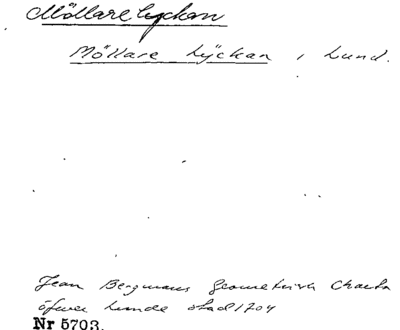 Möllare lyckan
Möllare Lÿckan i Lund.
Jean Bergmans Geometrisk Charta
öfwer Lunde stad 1704
Nr 5703.